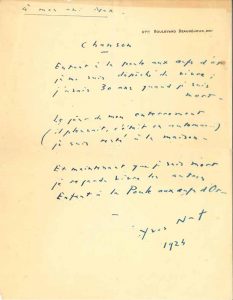 à mon ami
BOULEVARD BEAUSÉJOUR
Chanson
Enfant à la Poule aux œufs d'or
je me suis dépêché de vivre ;
j'avais 30 ans quand je suis
mort -
Le jour de mon enterrement
(il pleuvait, c'était en automne)
je suis resté à la maison -
Et maintenant que je suis mort
je regarde vivre les autres
Enfant à la Poule aux œufs d'Or -
Yves Nat
1924